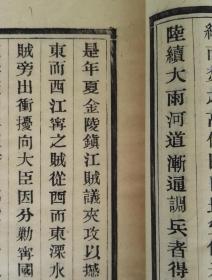 陸續大雨河道漸通調兵者得
是年夏金陵鎮江賊議夾攻以撼
東而西江寧之賊從西而東溧水
賊旁出衝擾向大臣因分勦寧國